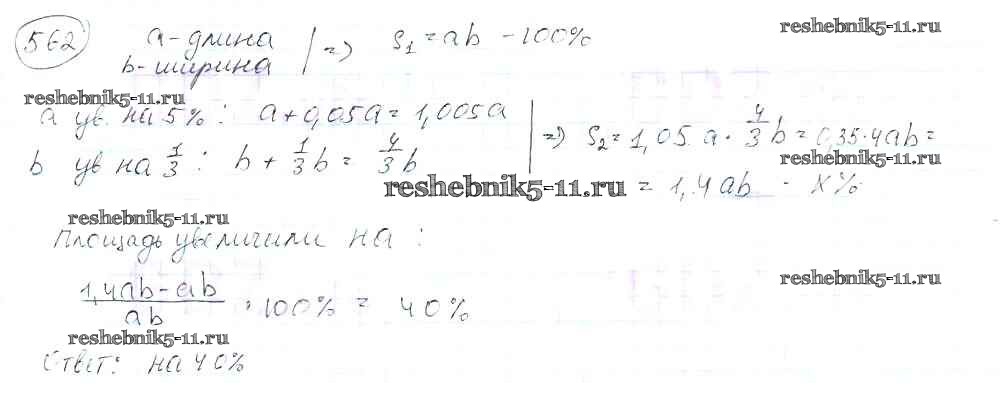 562
a - длина | => S₁ = ab - 100%
b - ширина
reshebnik5-11.ru
reshebnik5-11.ru
a ув. на 5%: a + 0,05a = 1,005a | => S₂ = 1,05 a · 4/3 b = 0,35 · 4ab =
b ув на 1/3: b + 1/3 b = 4/3 b
reshebnik5-11.ru
reshebnik5-11.ru
= 1,4ab - x%
reshebnik5-11.ru
Площадь увеличили на:
reshebnik5-11.ru
(1,4ab - ab)/ab · 100% = 40%
reshebnik5-11.ru
Ответ: на 40%